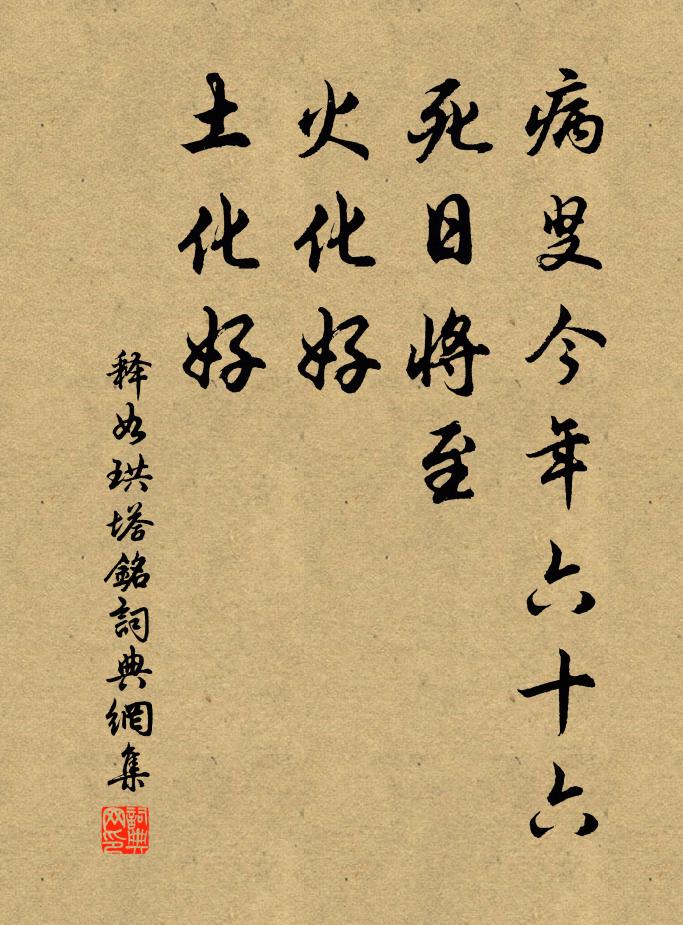 病叟今年六十六
死日將至
火化好
土化好
释如珙塔銘詞典網集
詞典网印